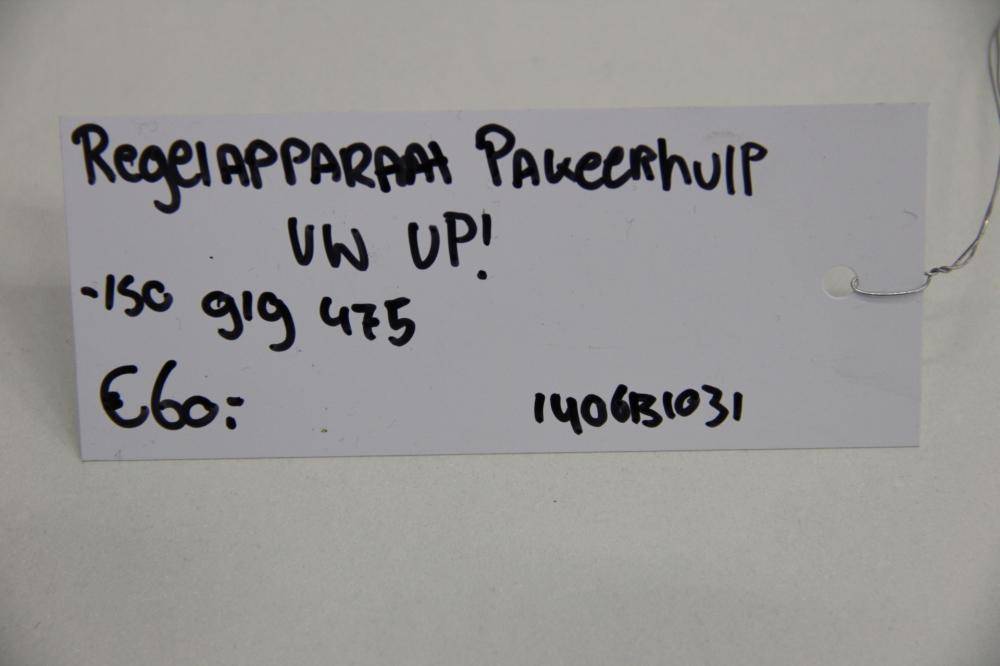 Regelapparaat Pakeerhulp
VW UP!
-1S0 919 475
€60:-
1406B1031